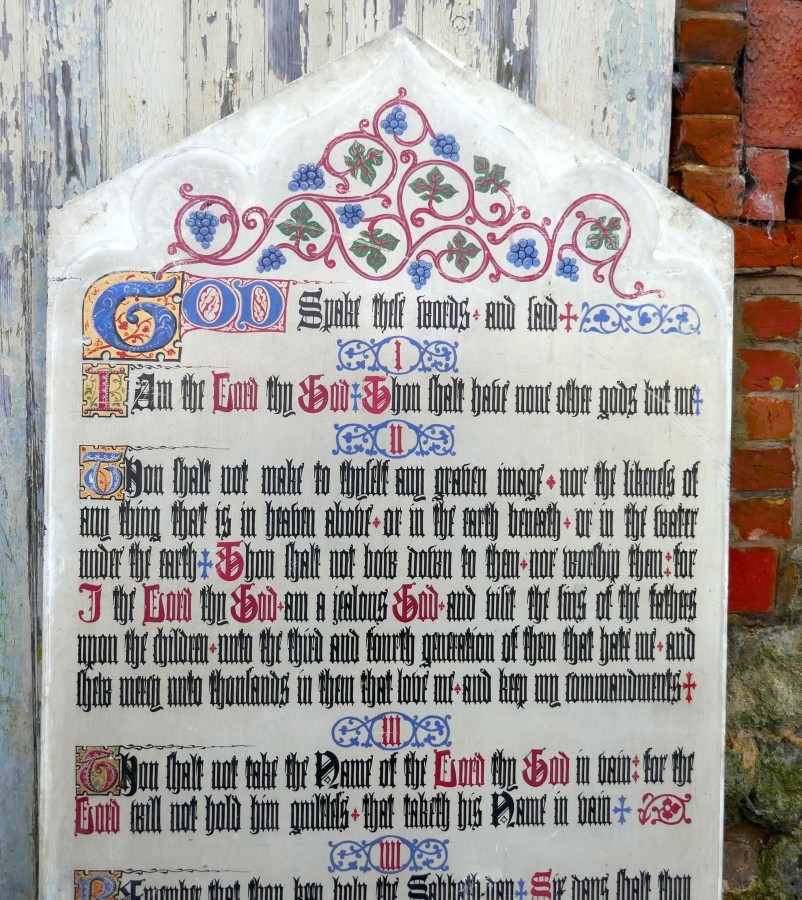 GOD Spake these words and said
I
I Am the Lord thy God Thou shalt have none other gods but me
II
Thou shalt not make to thyself any graven image nor the likeness of
any thing that is in heaven above or in the earth beneath or in the water
under the earth Thou shalt not bow down to them nor worship them: for
I the Lord thy God am a jealous God and visit the sins of the fathers
upon the children unto the third and fourth generation of them that hate me and
shew mercy unto thousands in them that love me and keep my commandments
III
Thou shalt not take the Name of the Lord thy God in vain: for the
Lord will not hold him guiltless that taketh his Name in vain
IIII
Remember that thou keep holy the Sabbath-day Six days shalt thou